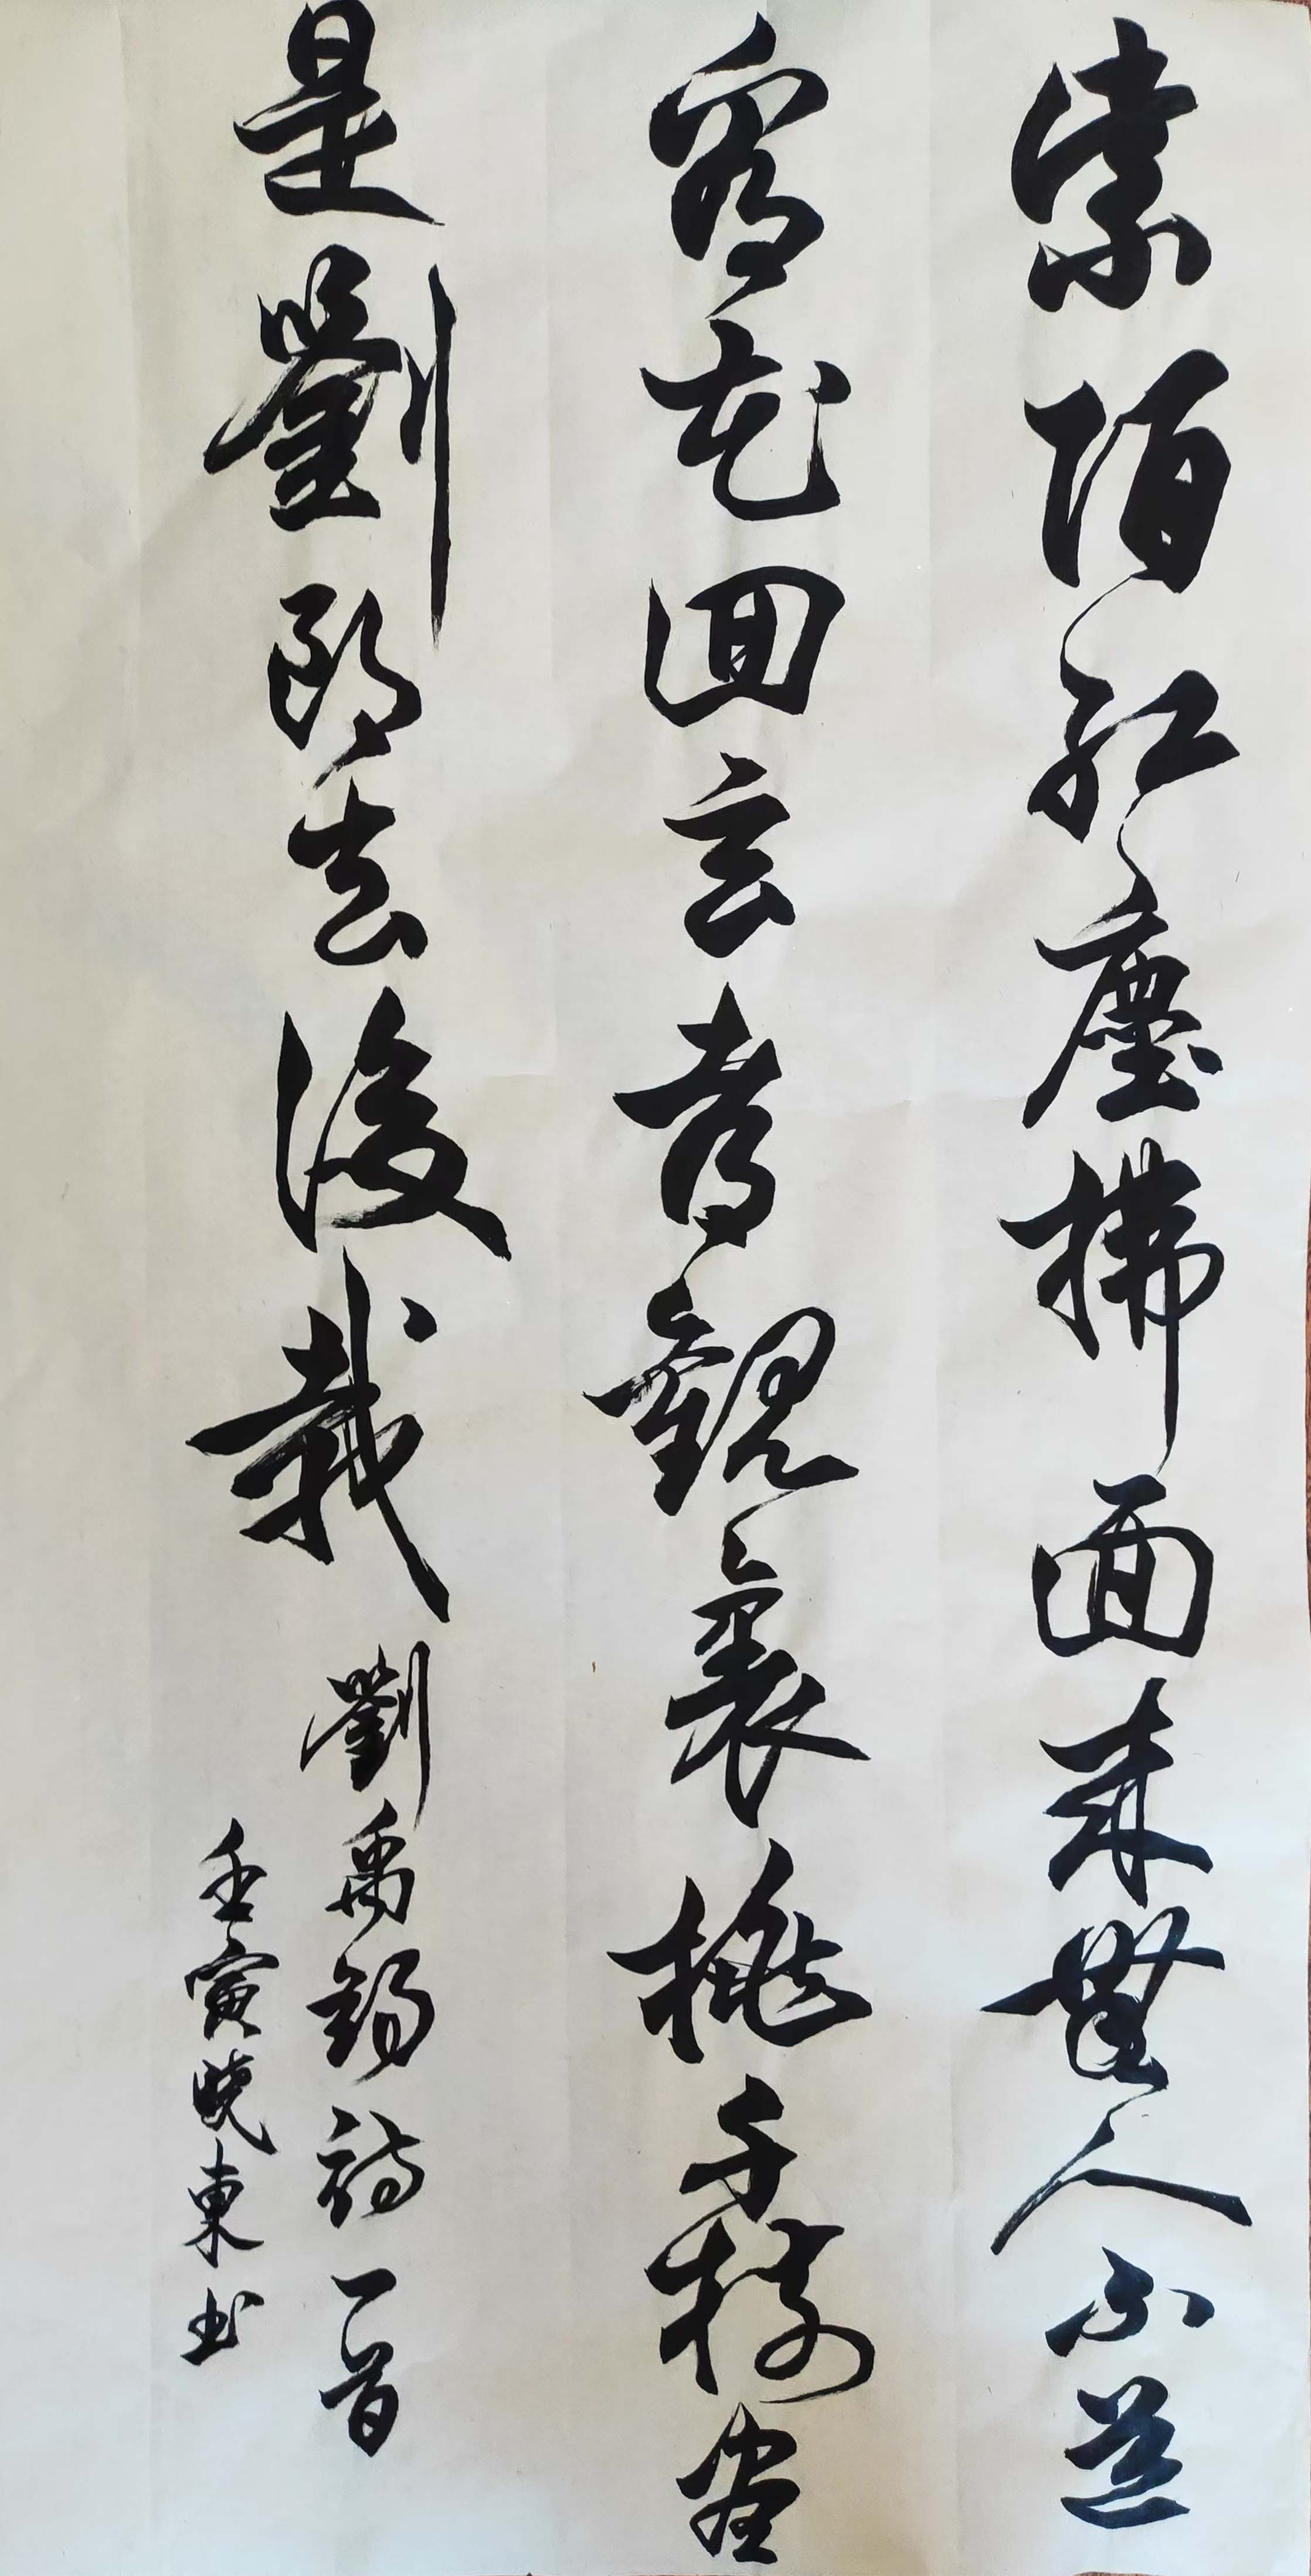 紫陌紅塵拂面来無人不道
看花回玄者觀裏桃千樹盡
是劉郎去後栽
劉禹錫詩一首
壬寅曉東书